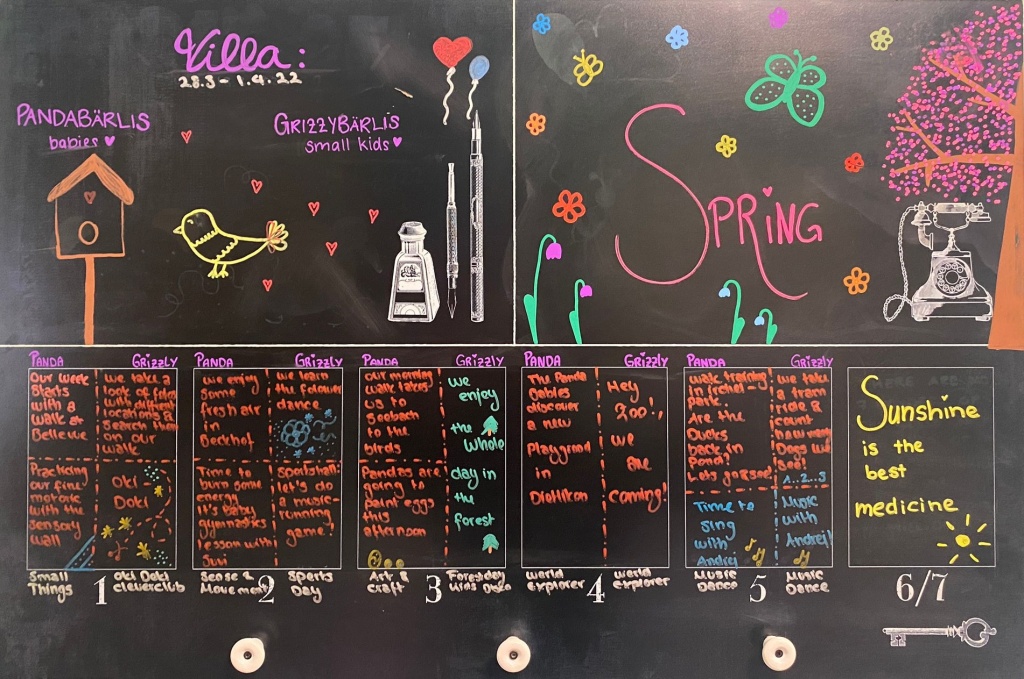 Villa:
28.3 - 1.4.22
PANDABÄRLIS
babies
GRIZZYBÄRLIS
small kids
SPRiNG
PANDA
GRIZZLY
Our week
Starts
with a
walk at
Bellevue
we take a
look of fotos
with different
locations &
search them
on our
walk
Practicing
our fine
motoric
with the
sensory
wall
Oki
Doki
Small
Things
1
Oki Doki
cleverclub
PANDA
GRIZZLY
we enjoy
Some
fresh air
in
Beckhof
we learn
the flower
dance
Time to
burn some
energy
It's baby
gymnastics
lesson with
Juvi
Sportsman:
let's do
a music-
running
game!
Sense &
Movement
2
Sports
Day
PANDA
GRIZZLY
our morning
walk takes
us to
Seebach
to the
birds
Pandas are
going to
paint eggs
this
afternoon
we
enjoy
the
whole
day in
the
forest
Art &
craft
3
Forestday
PANDA
GRIZZLY
The Panda
Babies
discover
a new
Playground
in
Dietlikon
Hey
Zoo!,
we
are
coming!
world
explorer
4
world
explorer
PANDA
GRIZZLY
walk training
park.
Are the
Ducks
back in
Pond?
Lets go see!
we take
a tram
ride &
count
how many
Dogs we
see!
1..2...3
Time to
sing
with
Andrej
Music
with
Andrej!
Music
Dance
5
Music
Dance
Sunshine
is the
best
medicine
6/7